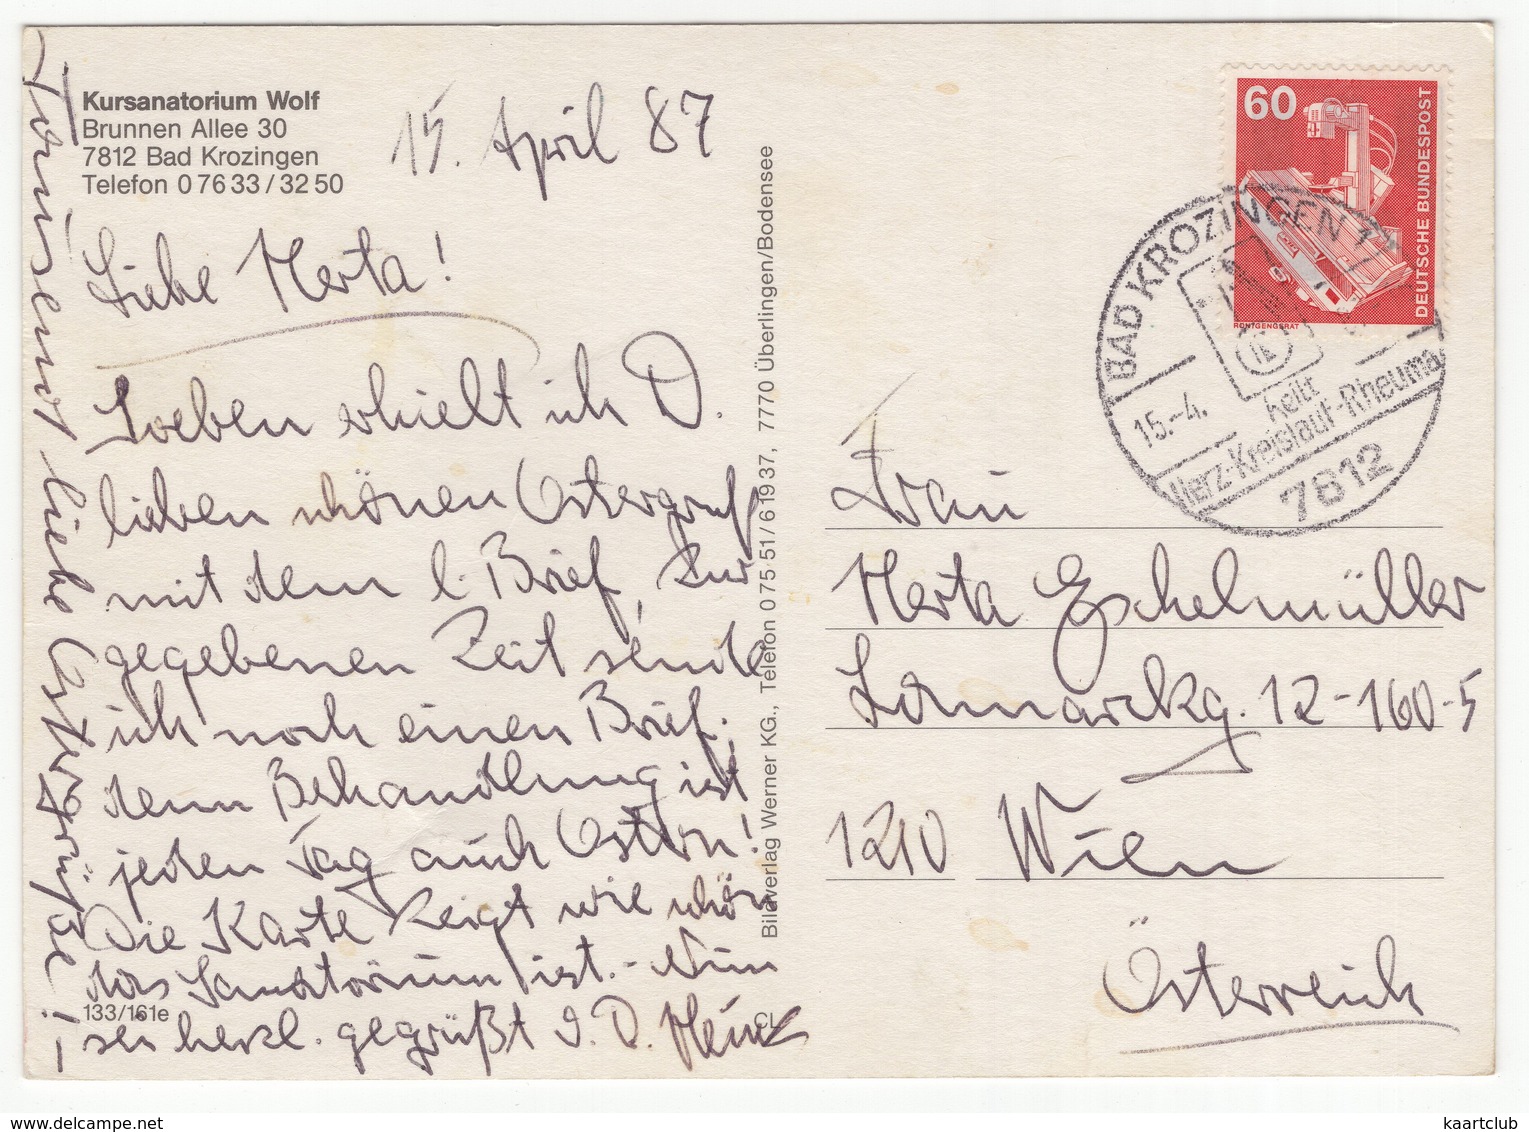 Kursanatorium Wolf
Brunnen Allee 30
7812 Bad Krozingen
Telefon 0 76 33 / 32 50
15. April 87
Liebe Herta!
Soeben erhielt ich D.
lieben schönen Ostergruß
mit dem l. Brief, zur
gegebenen Zeit sende
ich noch einen Brief,
denn Behandlung ist
jeden Tag auch Ostern!
Die Karte zeigt wie schön
das Sanatorium ist. - Nun
sei herzl. gegrüßt v. D. Heinz
Tausend liebe Ostergrüße!
133/161e
CL
Bildverlag Werner KG., Telefon 0 75 51 / 6 19 37, 7770 Überlingen/Bodensee
60
DEUTSCHE BUNDESPOST
RÖNTGENGERÄT
BAD KROZINGEN 1
15.-4.
heilt
Herz-Kreislauf-Rheuma
7812
Frau
Herta Eschelmüller
12-160-5
1210 Wien
Österreich
kaartclub